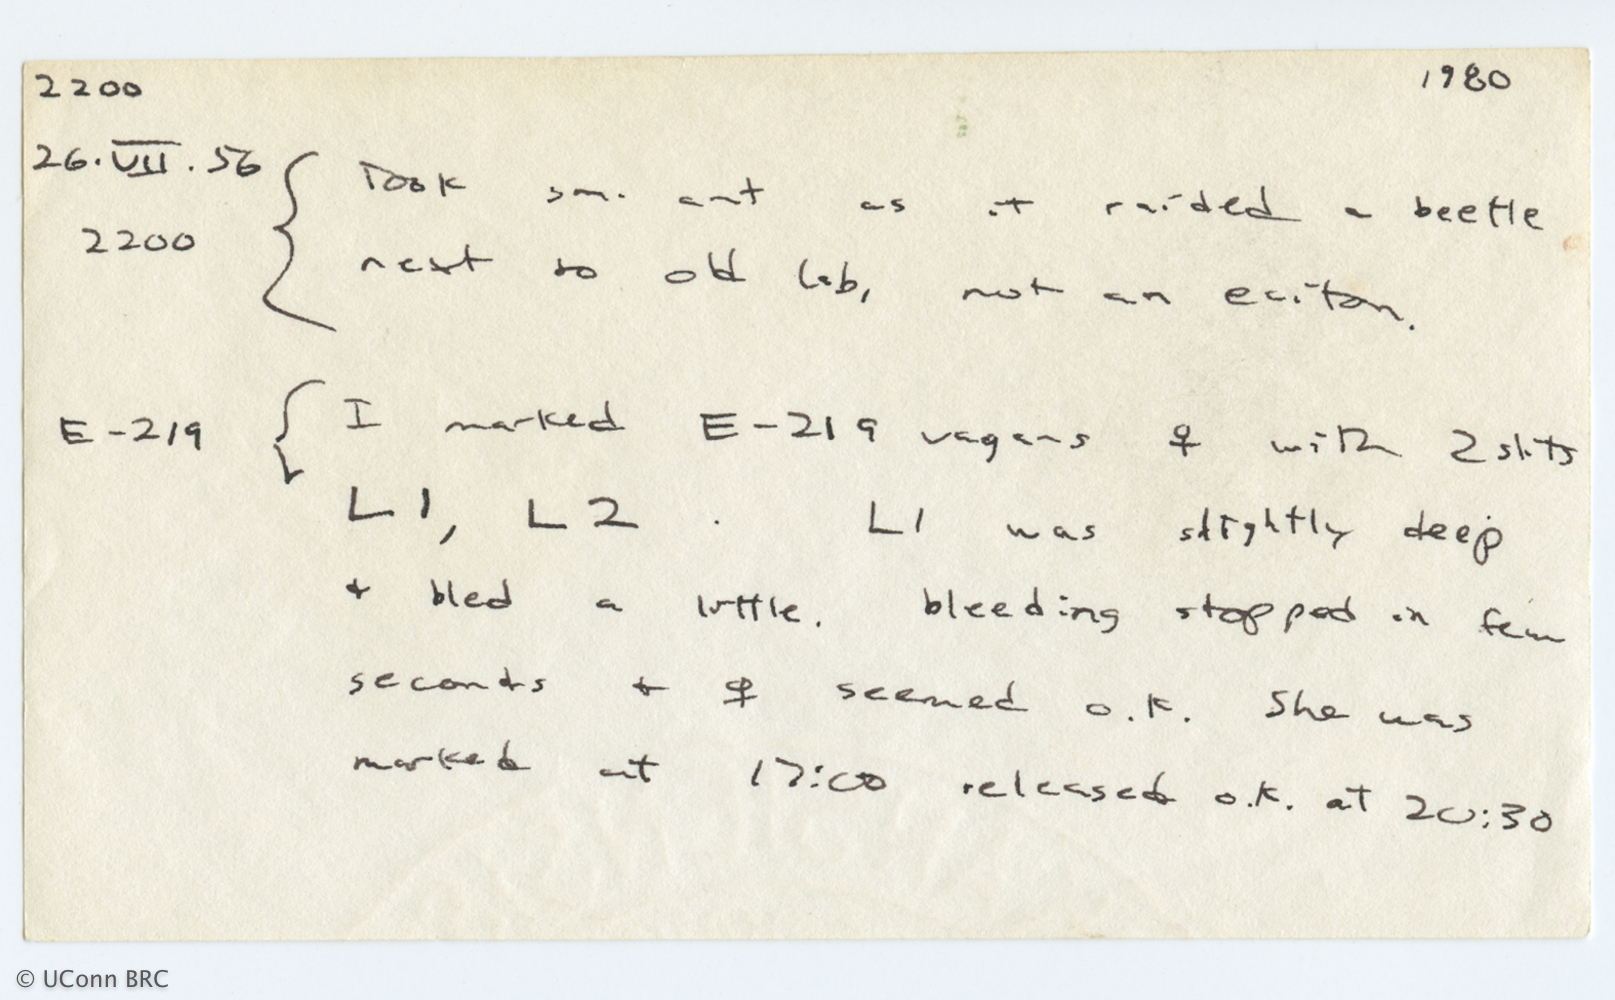 2200 1980
26.VII.56 Took sm. ant as it raided a beetle
2200 next to old lab, not an eciton.
E-219 I marked E-219 vagans ♀ with 2 slits
L1, L2 . L1 was slightly deep
+ bled a little. bleeding stopped in few
seconds + ♀ seemed o.k. She was
marked at 17:00 released o.k. at 20:30
© UConn BRC